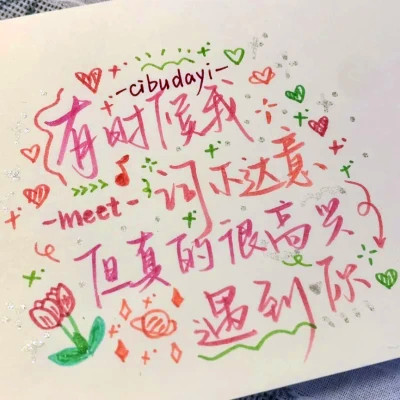 -cibudayi-
有时候我
词不达意、
-meet-
但真的很高兴
遇到你